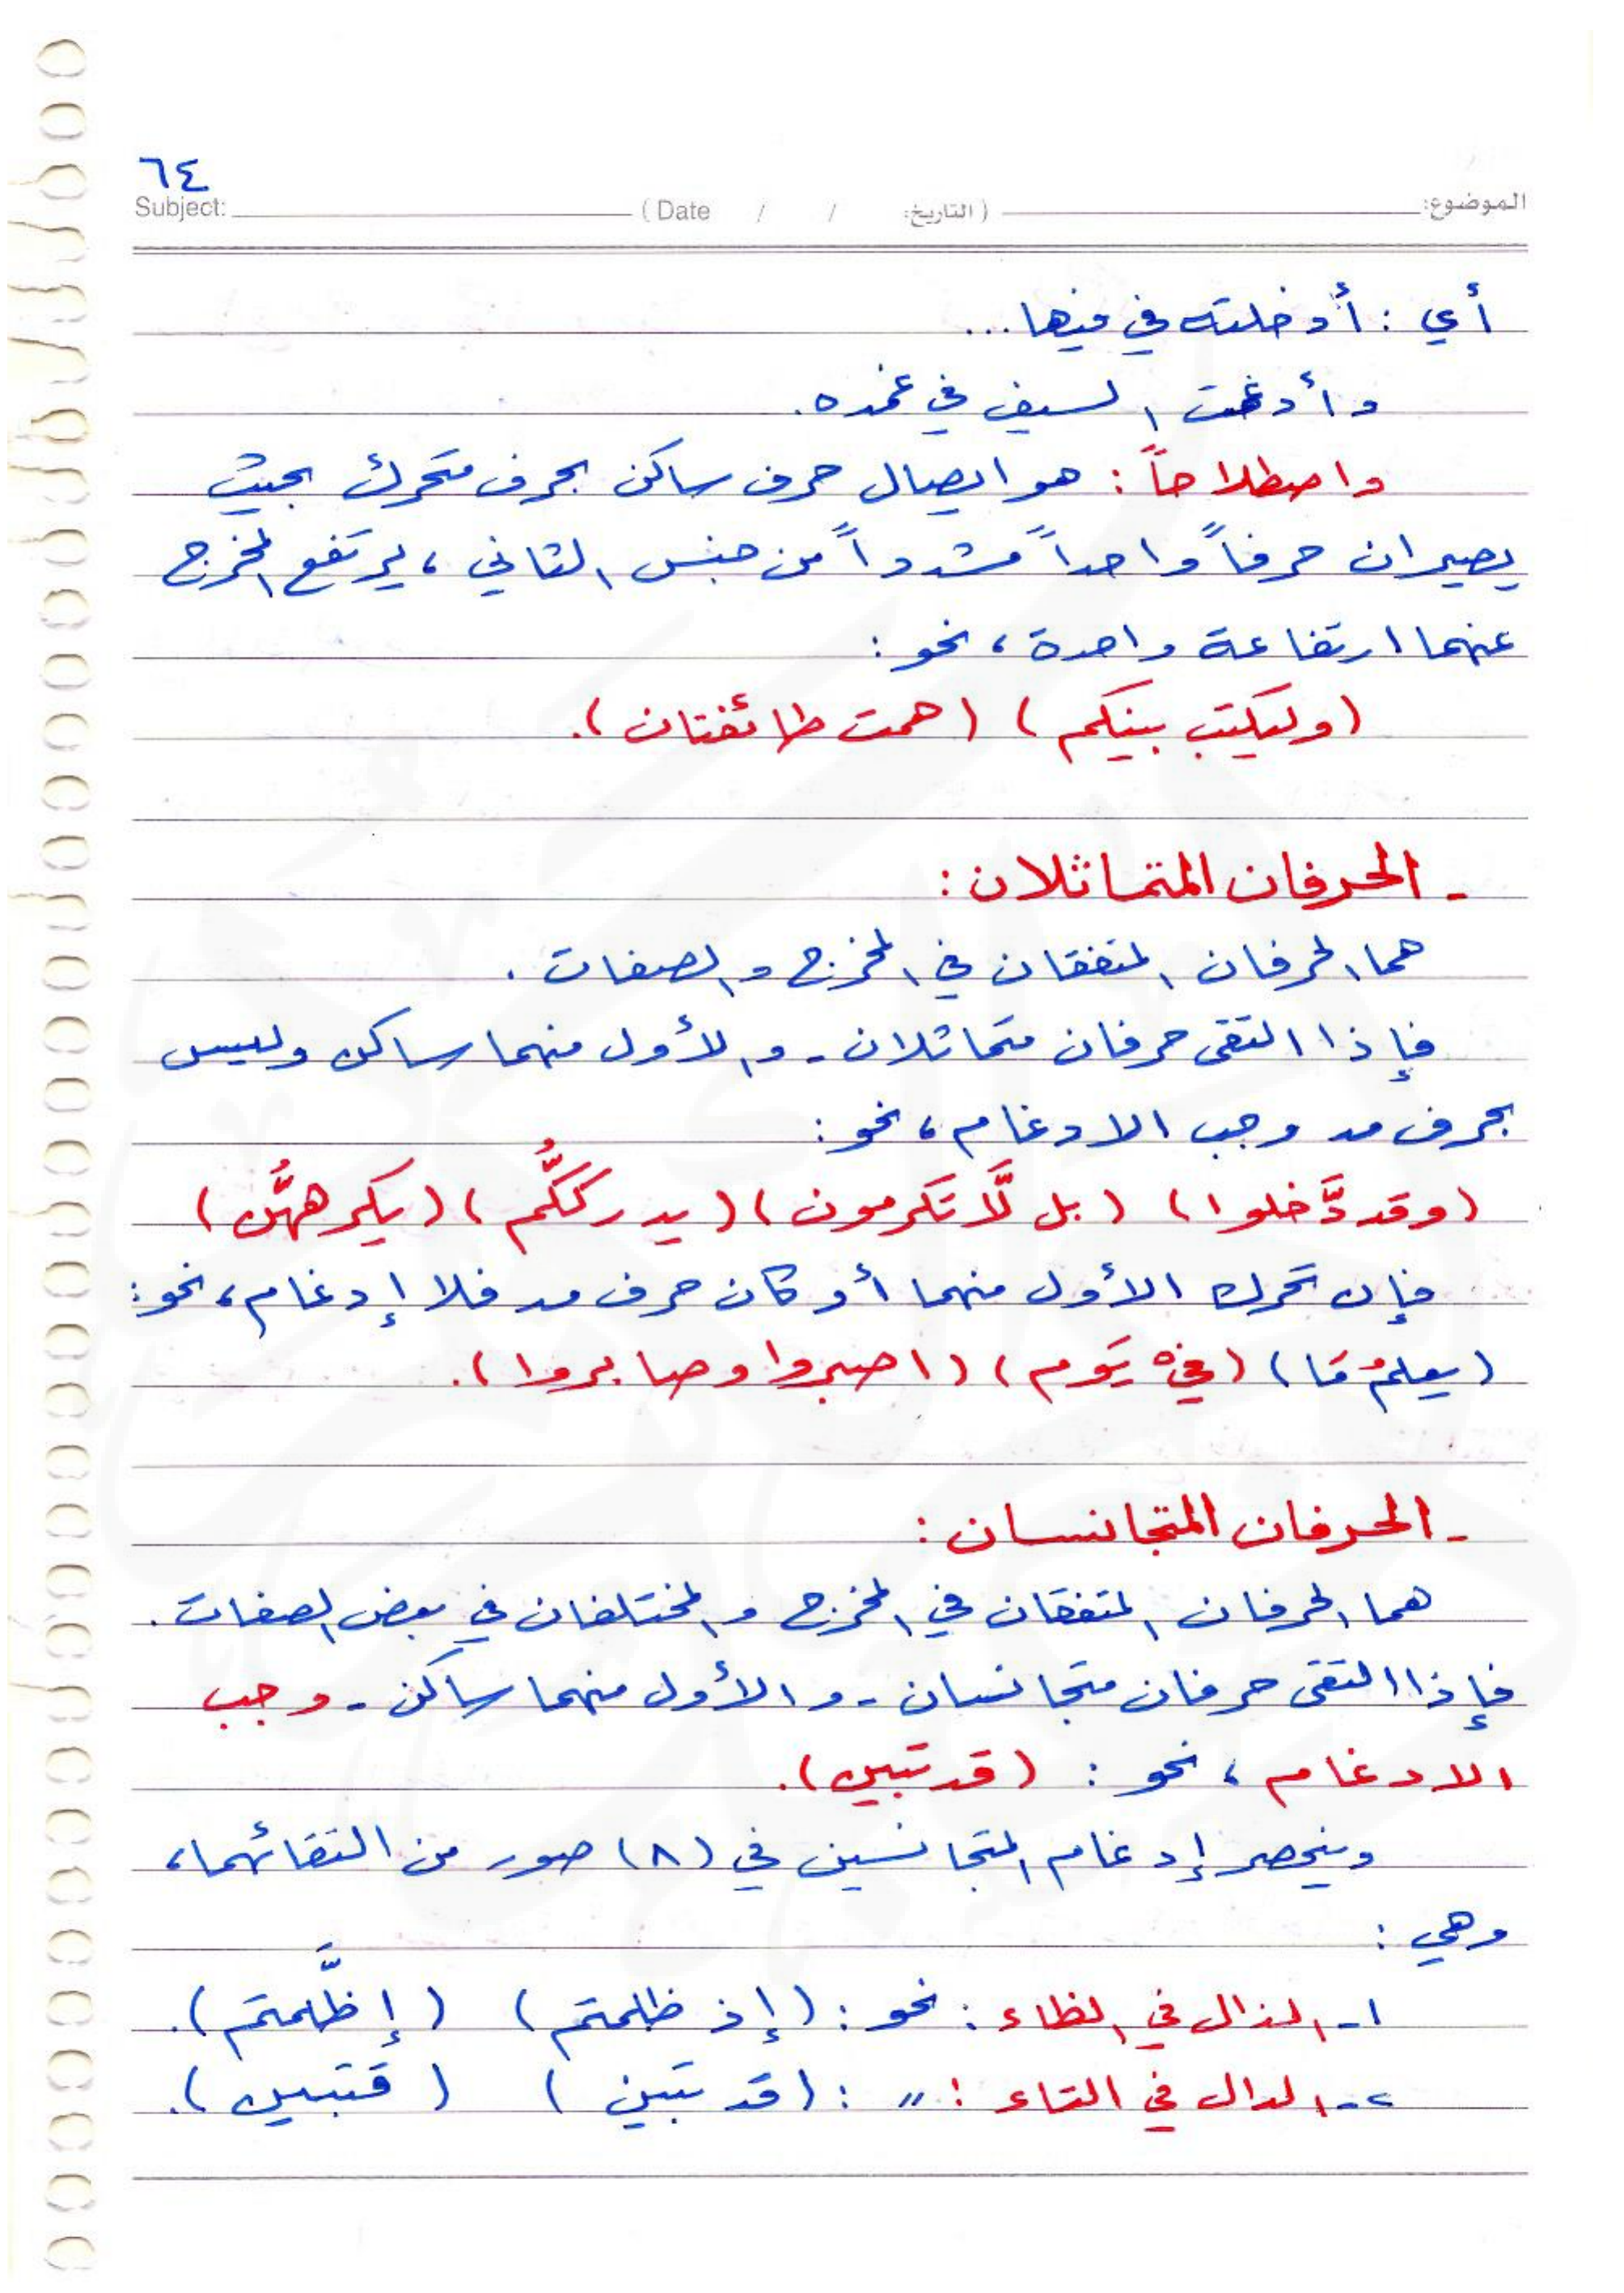 ٦٤
الموضوع: (التاريخ: / / Date) Subject:
أي : أدخلته في فيها ...
وأدغمت السيف في غمده.
واصطلاحاً : هو ايصال حرف ساكن بحرف متحرك بحيث
يصيران حرفاً واحداً مشدداً من جنس الثاني ، يرتفع المخرج
عنهما ارتفاعة واحدة ، نحو :
(وليكتب بينكم) (همت طائفتان).
- الحرفان المتماثلان :
هما الحرفان المتفقان في المخرج والصفات .
فإذا التقى حرفان متماثلان - والأول منهما ساكن وليس
بحرف مد وجب الادغام ، نحو :
(وقد دَّخلوا) (بل لَّا تكرمون) (يدرككُّم) (يكرههُّن)
فإن تحرك الأول منهما أو كان حرف مد فلا إدغام ، نحو :
(يعلمُ مَا) (في يَوم) (اصبروا وصابروا).
- الحرفان المتجانسان :
هما الحرفان المتفقان في المخرج والمختلفان في بعض الصفات .
فإذا التقى حرفان متجانسان - والأول منهما ساكن - وجب
الادغام ، نحو : (قد تبين).
وينحصر إدغام المتجانسين في (٨) صور من التقائهما ،
وهي :
١- الذال في الظاء : نحو : (إذ ظلمتم) (إظَّلمتم).
٢- الدال في التاء : " : (قد تبين) (قتبين).